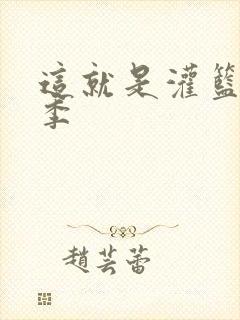 這就是灌籃
季
趙芸蕾